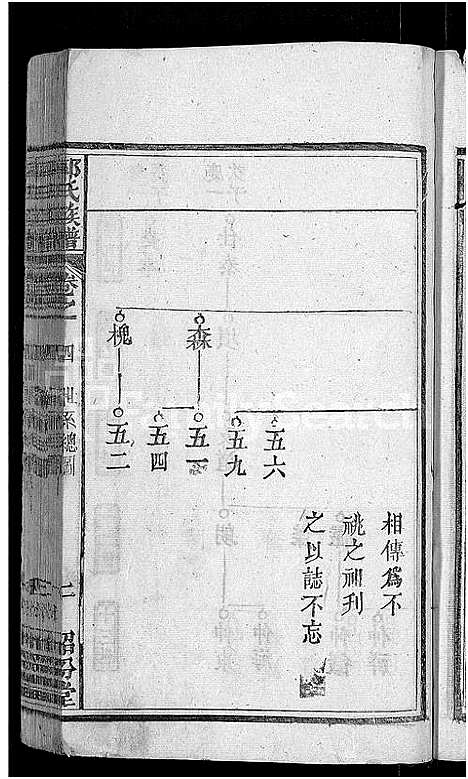 相傳為不
祧之祖刊
之以誌不忘
五六
五九
森
五一
五四
槐
五二
郭氏族譜
卷之一
四
世系總圖